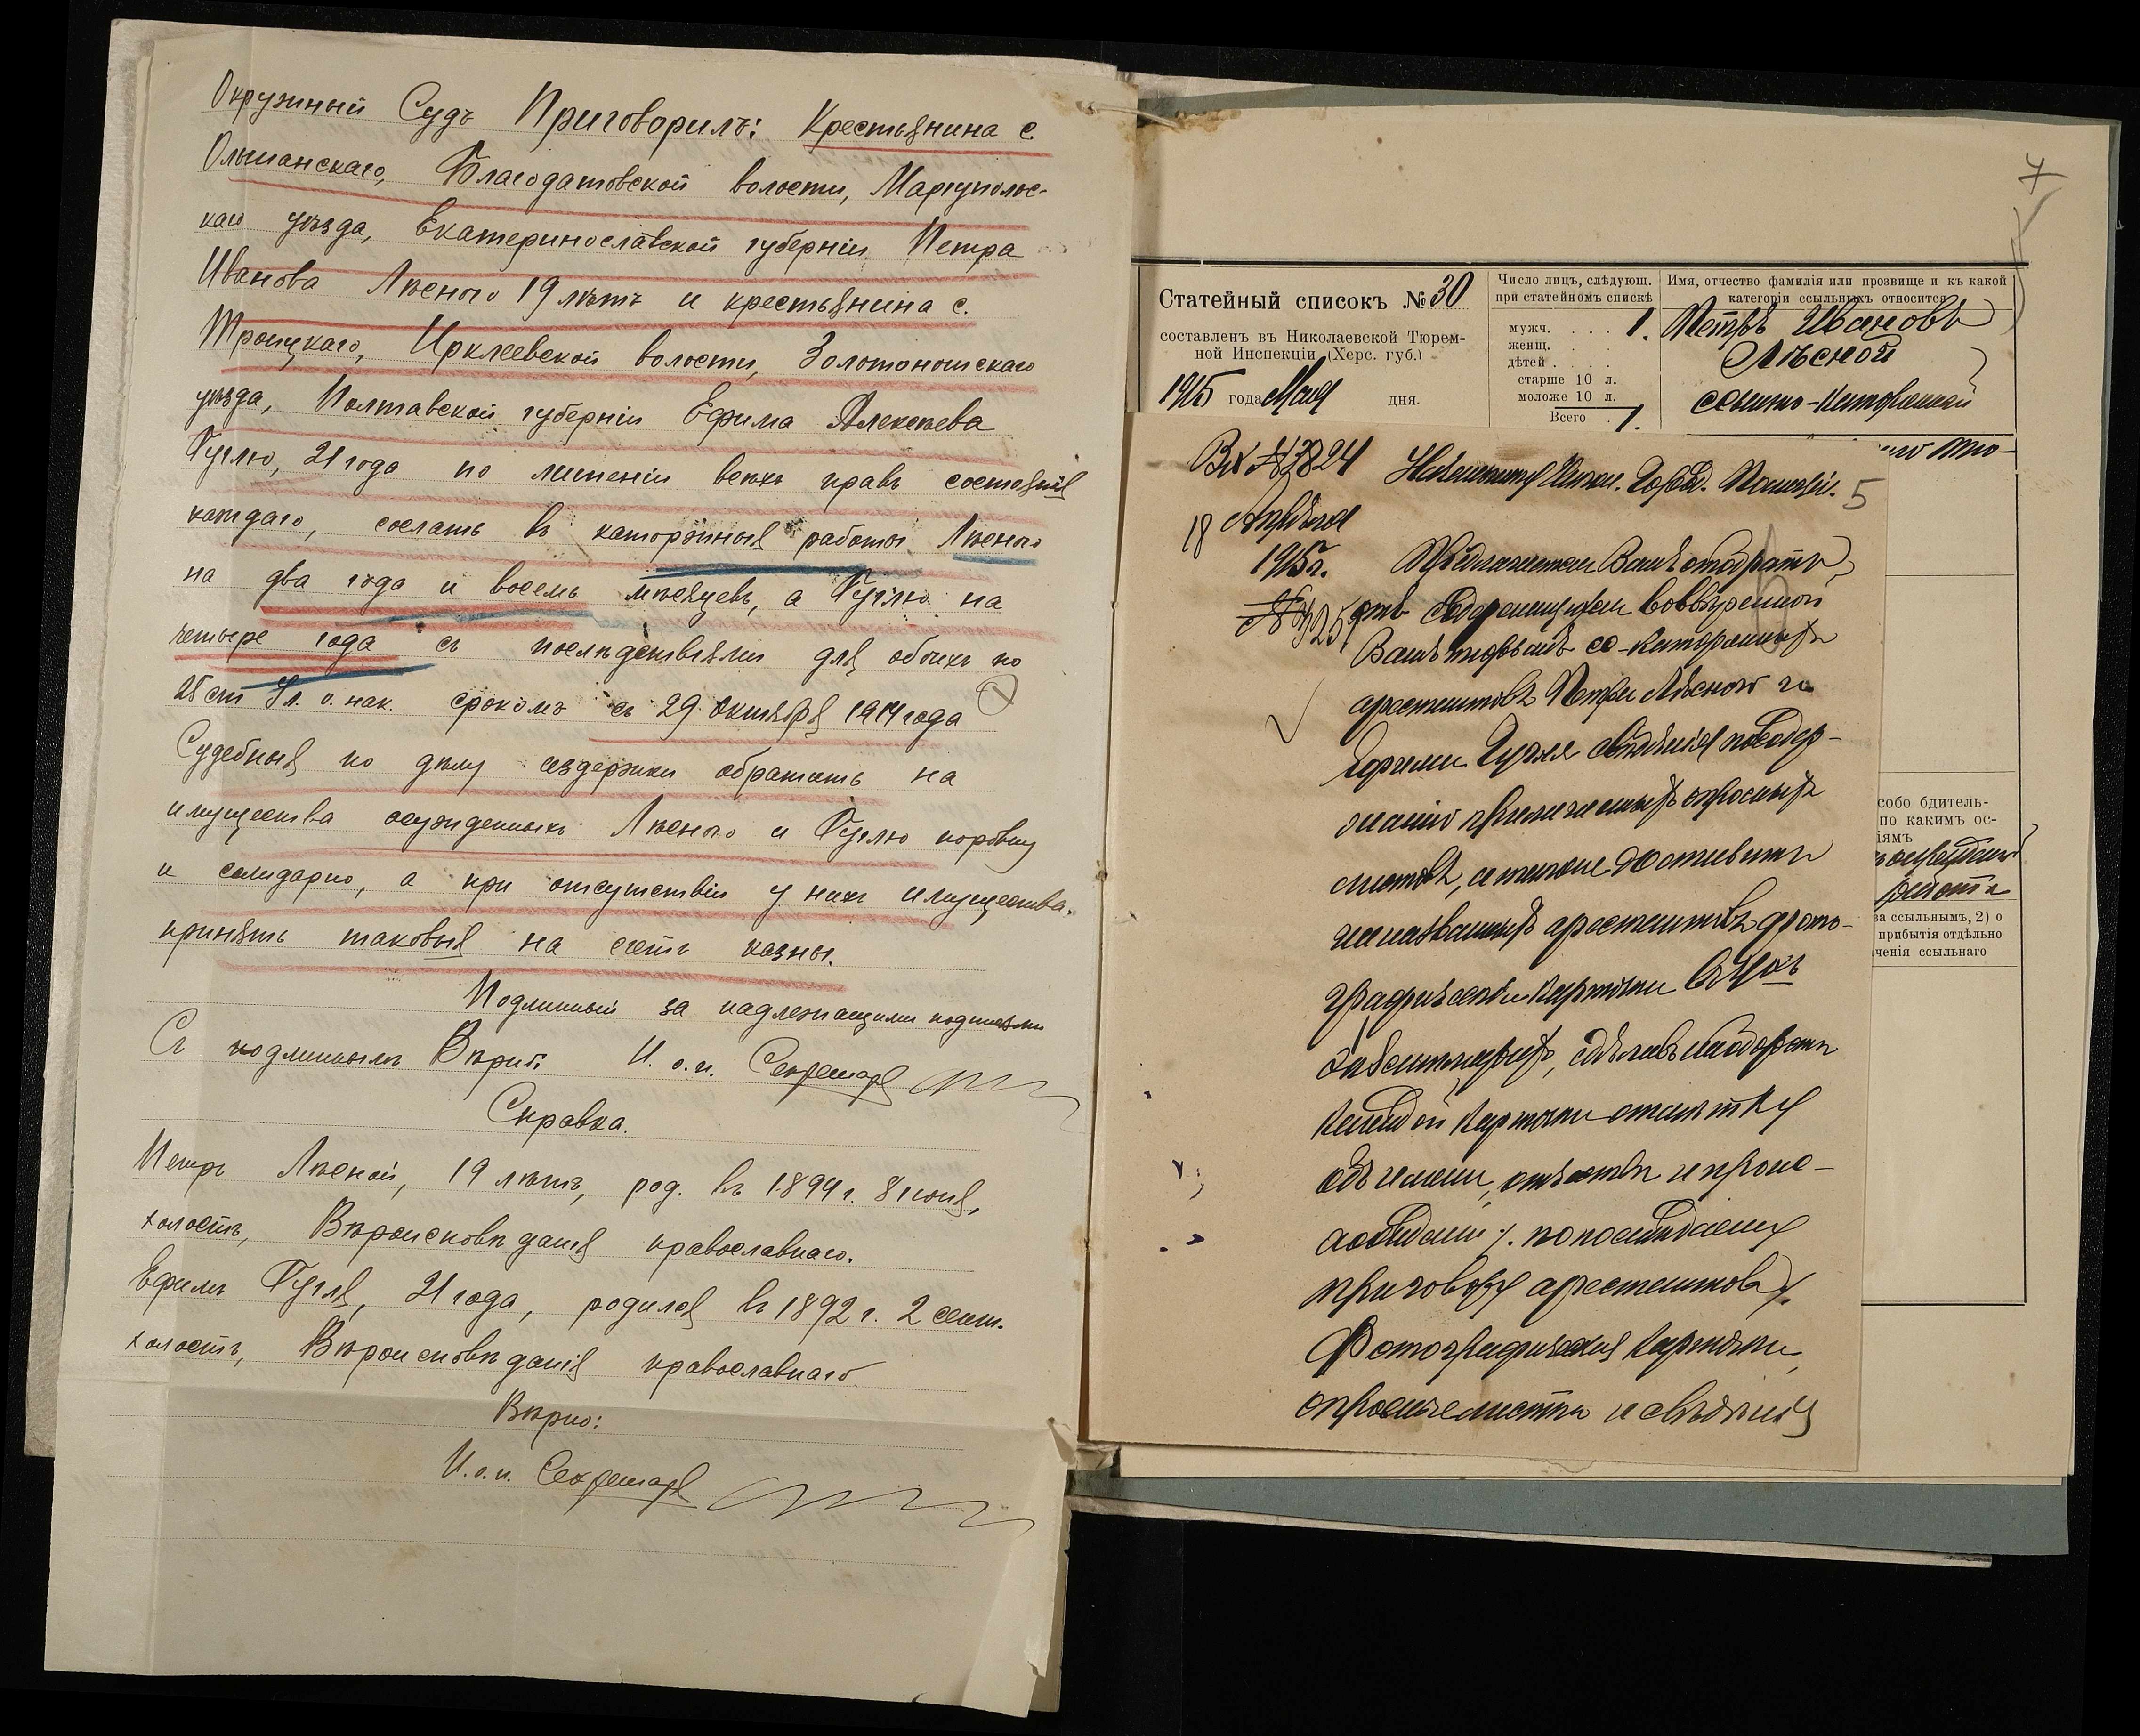 Окружный Судъ Приговорилъ: Крестьянина с.
Ольшанскаго, Благодатовской волости, Мариупольс-
каго уѣзда, Екатеринославской губерніи Петра
Иванова Лѣсного 19 лѣтъ и крестьянина с.
Троицкаго, Ирклеевской волости, Золотоношскаго
уѣзда, Полтавской губерніи Ефима Алексѣева
Гуглю, 21 года по лишеніи всѣхъ правъ состоянія
каждаго, сослать въ каторжныя работы Лѣсного
на два года и восемь мѣсяцевъ, а Гуглю на
четыре года съ послѣдствіями для обоихъ по
25 ст Ул. о нак. срокомъ съ 29 октября 1914 года
Судебныя по дѣлу издержки обратить на
имущества осужденныхъ Лѣсного и Гуглю поровну
и солидарно, а при отсутствіи у нихъ имущества,
принять таковыя на счетъ казны.
Подлинный за надлежащими подписями
Съ подлиннымъ Вѣрно: И. о. п. Секретаря
Справка.
Петръ Лѣсной, 19 лѣтъ, род. въ 1894 г. 8 іюня,
холостъ, Вѣроисповѣданія православнаго.
Ефимъ Гугля, 21 года, родился въ 1892 г. 2 сент.
холостъ, Вѣроисповѣданія православнаго
Вѣрно:
И. о. п. Секретаря
7
Статейный списокъ № 30
составленъ въ Николаевской Тюрем-
ной Инспекціи (Херс. губ.)
1915 года Мая дня.
Число лицъ, слѣдующ.
при статейномъ спискѣ
мужч. . . . . 1.
женщ. . . .
дѣтей . . . .
старше 10 л.
моложе 10 л.
Всего . 1.
Имя, отчество фамилія или прозвище и къ какой
категоріи ссыльныхъ относится
Петръ Ивановъ
Лѣсной
ссыльно-каторжный
Вх № 3824
18 Апрѣля
1915 г.
5
Предлагается Вамъ отобрать
отъ содержащихся во ввѣренной
Вамъ тюрьмѣ сс-каторжныхъ
арестантовъ Петра Лѣсного и
Ефима Гугля свѣдѣнія по содер-
жанію прилагаемыхъ опросныхъ
листовъ, а также доставить
названныхъ арестантовъ фото-
графическія карточки въ 4хъ
экземплярахъ, сдѣлавъ на оборотѣ
каждой карточки отмѣтку
объ имени, отчествѣ и проис-
по послѣднему
приговору арестантовъ.
Фотографическія карточки,
опросные листы и свѣдѣнія
собо бдитель-
по какимъ ос-
іямъ
работъ
за ссыльнымъ, 2) о
прибытія отдѣльно
ченія ссыльнаго